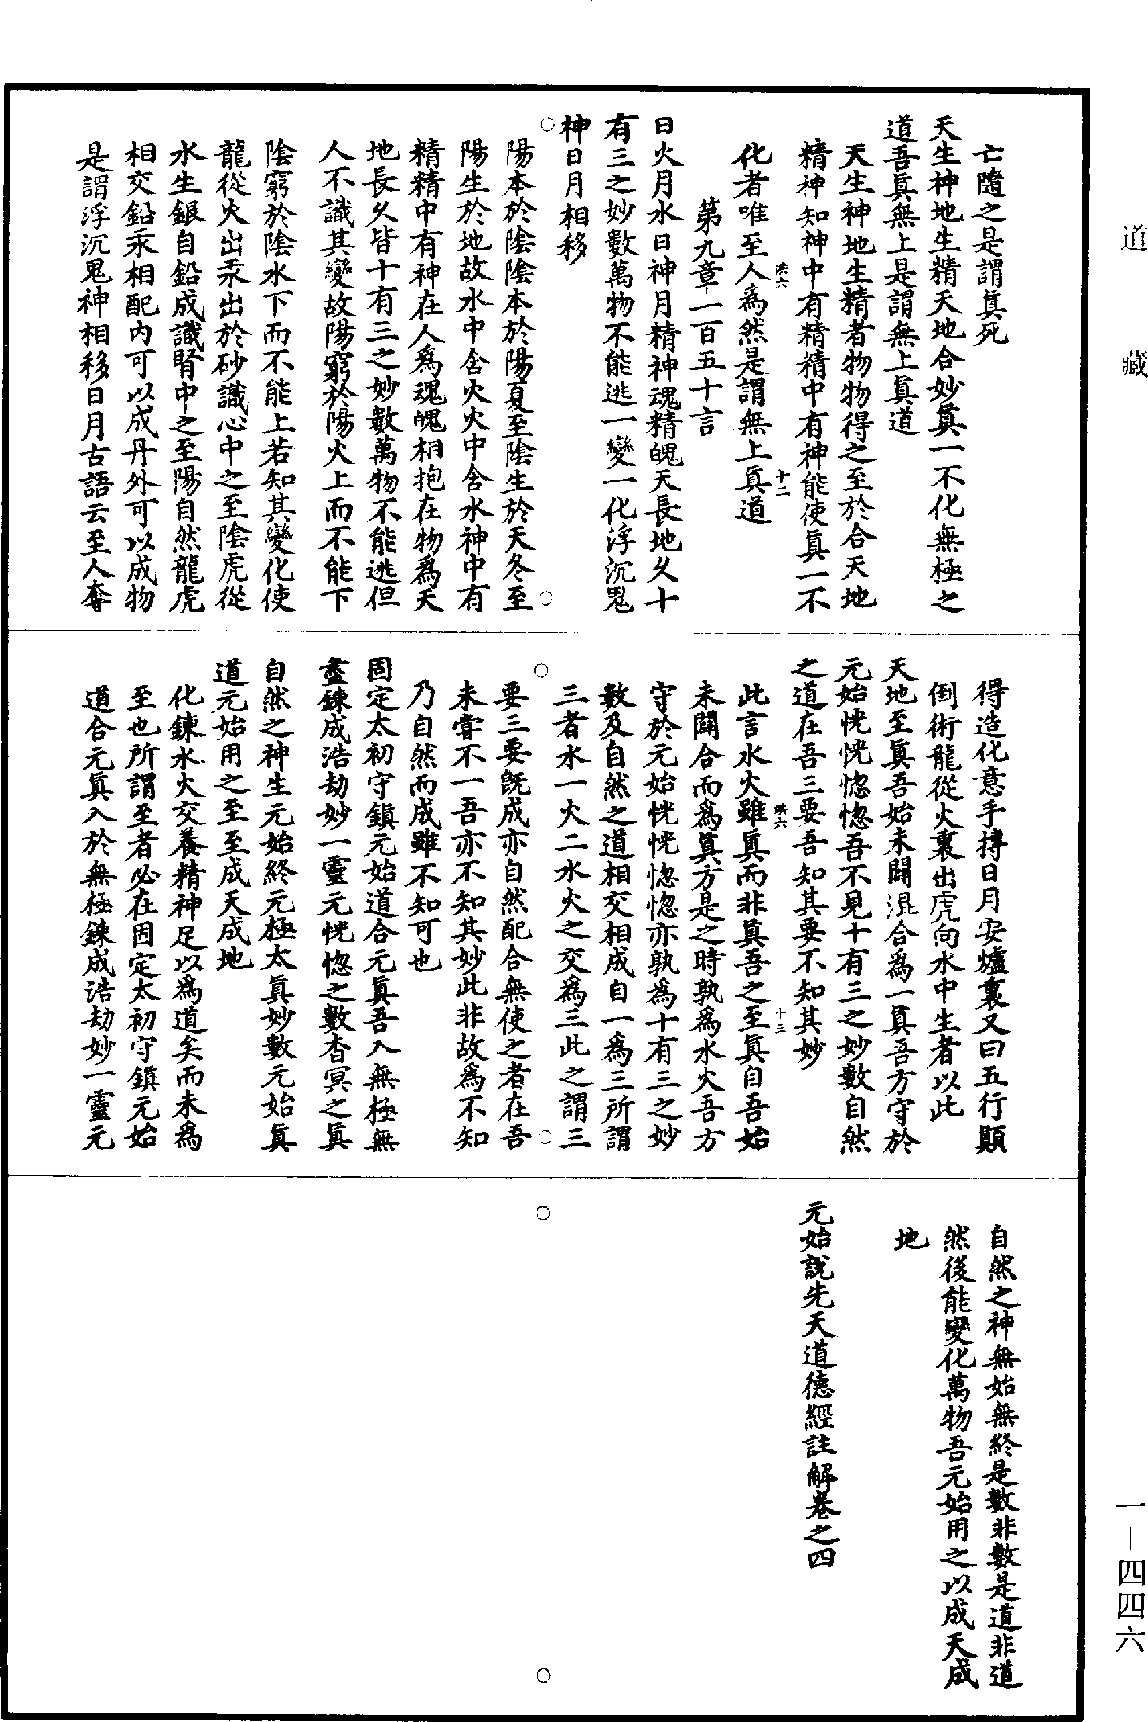 道藏
亡隨之是謂真死
天生神地生精天地合妙真一不化無極之
道吾真無上是謂無上真道
天生神地生精者物物得之至於合天地
精神知神中有精精中有神能使真一不
化者唯至人為然是謂無上真道
第九章一百五十言
日火月水日神月精神魂精魄天長地久十
有三之妙數萬物不能逃一變一化浮沉鬼
神日月相移
陽本於陰陰本於陽夏至陰生於天冬至
陽生於地故水中含火火中含水神中有
精精中有神在人為魂魄相抱在物為天
地長久皆十有三之妙數萬物不能逃但
人不識其變故陽窮於陽火上而不能下
陰窮於陰水下而不能上若知其變化使
龍從火出汞出於砂識心中之至陰虎從
水生銀自鉛成識腎中之至陽自然龍虎
相交鉛汞相配內可以成丹外可以成物
是謂浮沉鬼神相移日月古語云至人奪
得造化意手摶日月安爐裏又曰五行顛
倒術龍從火裏出虎向水中生者以此
天地至真吾始未闢混合為一真吾方守於
元始恍恍惚惚吾不見十有三之妙數自然
之道在吾三要吾知其要不知其妙
此言水火雖真而非真吾之至真自吾始
未闢合而為真方是之時孰為水火吾方
守於元始恍恍惚惚亦孰為十有三之妙
數及自然之道相交相成自一為三所謂
三者水一火二水火之交為三此之謂三
要三要既成亦自然配合無使之者在吾
未嘗不一吾亦不知其妙此非故為不知
乃自然而成雖不知可也
固定太初守鎮元始道合元真吾入無極無
盡鍊成浩劫妙一靈元恍惚之數杳冥之真
自然之神生元始終元極太真妙數元始真
道元始用之至至成天成地
化鍊水火交養精神足以為道矣而未為
至也所謂至者必在固定太初守鎮元始
道合元真入於無極鍊成浩劫妙一靈元
自然之神無始無終是數非數是道非道
然後能變化萬物吾元始用之以成天成
地
元始說先天道德經註解卷之四
一—四四六